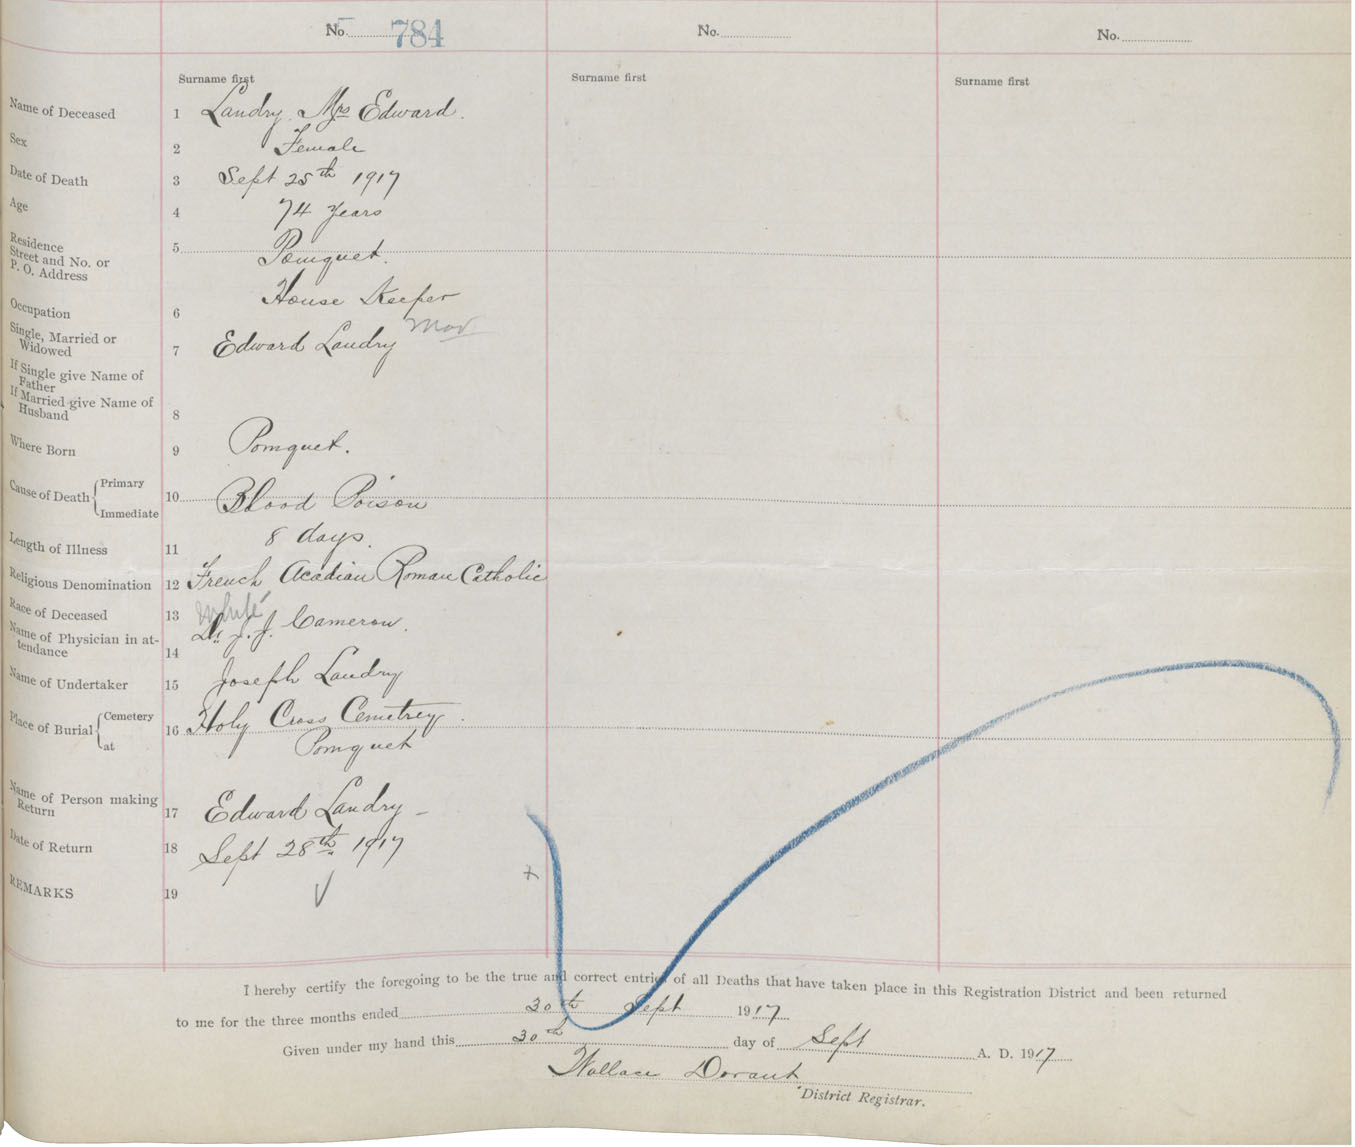 No. 784
No.
No.
Surname first
Surname first
Surname first
Name of Deceased 1 Landry. Mrs Edward.
Sex 2 Female
Date of Death 3 Sept 25th 1917
Age 4 74 years
Residence
Street and No. or
P. O. Address 5 Pomquet.
Occupation 6 House Keeper
Mar
Single, Married or
Widowed 7 Edward Landry
If Single give Name of
Father
If Married give Name of
Husband 8
Where Born 9 Pomquet.
Cause of Death Primary
Immediate 10 Blood Poison
Length of Illness 11 8 days.
Religious Denomination 12 French Acadian Roman Catholic
Race of Deceased 13 White
Name of Physician in at-
tendance 14 Dr J. J. Cameron.
Name of Undertaker 15 Joseph Landry
Place of Burial Cemetery
at 16 Holy Cross Cemetrey.
Pomquet
Name of Person making
Return 17 Edward Landry -
Date of Return 18 Sept 28th 1917
REMARKS 19
I hereby certify the foregoing to be the true and correct entries of all Deaths that have taken place in this Registration District and been returned
to me for the three months ended 30th Sept 1917
Given under my hand this 30th day of Sept A. D. 1917
Wallace Dorant
District Registrar.